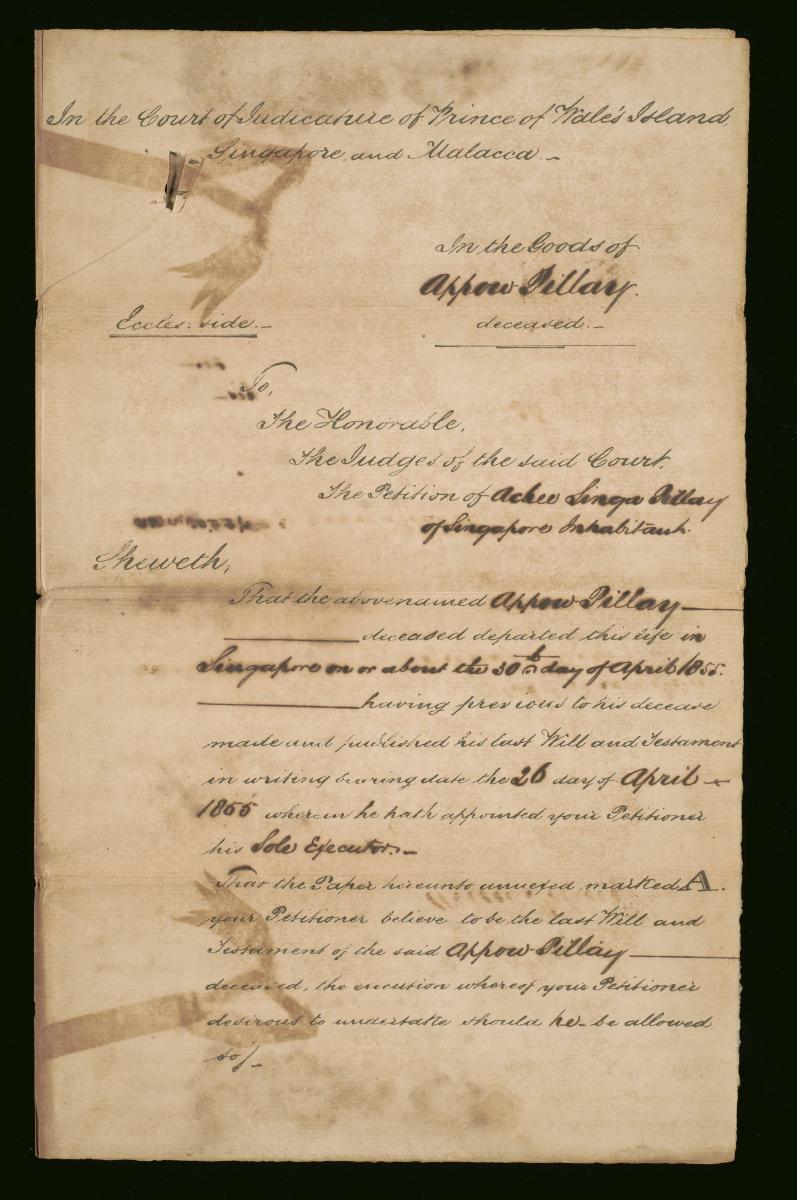 In the Court of Judicature of Prince of Wales Island,
Singapore, and Malacca.-
In the Goods of
Appow Pillay.
deceased.-
Eccles: side.-
To,
The Honorable,
The Judges of the said Court.
The Petition of Achee Singa Pillay
of Singapore Inhabitant.
Sheweth,
That the abovenamed Appow Pillay
deceased departed this life in
Singapore on or about the 30th day of April 1855.
having previous to his decease
made and published his last Will and Testament
in writing bearing date the 26 day of April
1855 wherein he hath appointed your Petitioner
his Sole Executor.-
That the Paper hereunto annexed marked A.
your Petitioner believe to be the last Will and
Testament of the said Appow Pillay
deceased, the execution whereof your Petitioner
desirous to undertake should he be allowed
so/-